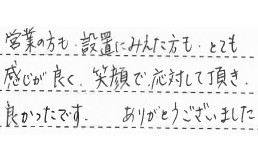 営業の方も、設置にみえた方も、とても
感じが良く、笑顔で応対して頂き、
良かったです。 ありがとうございました